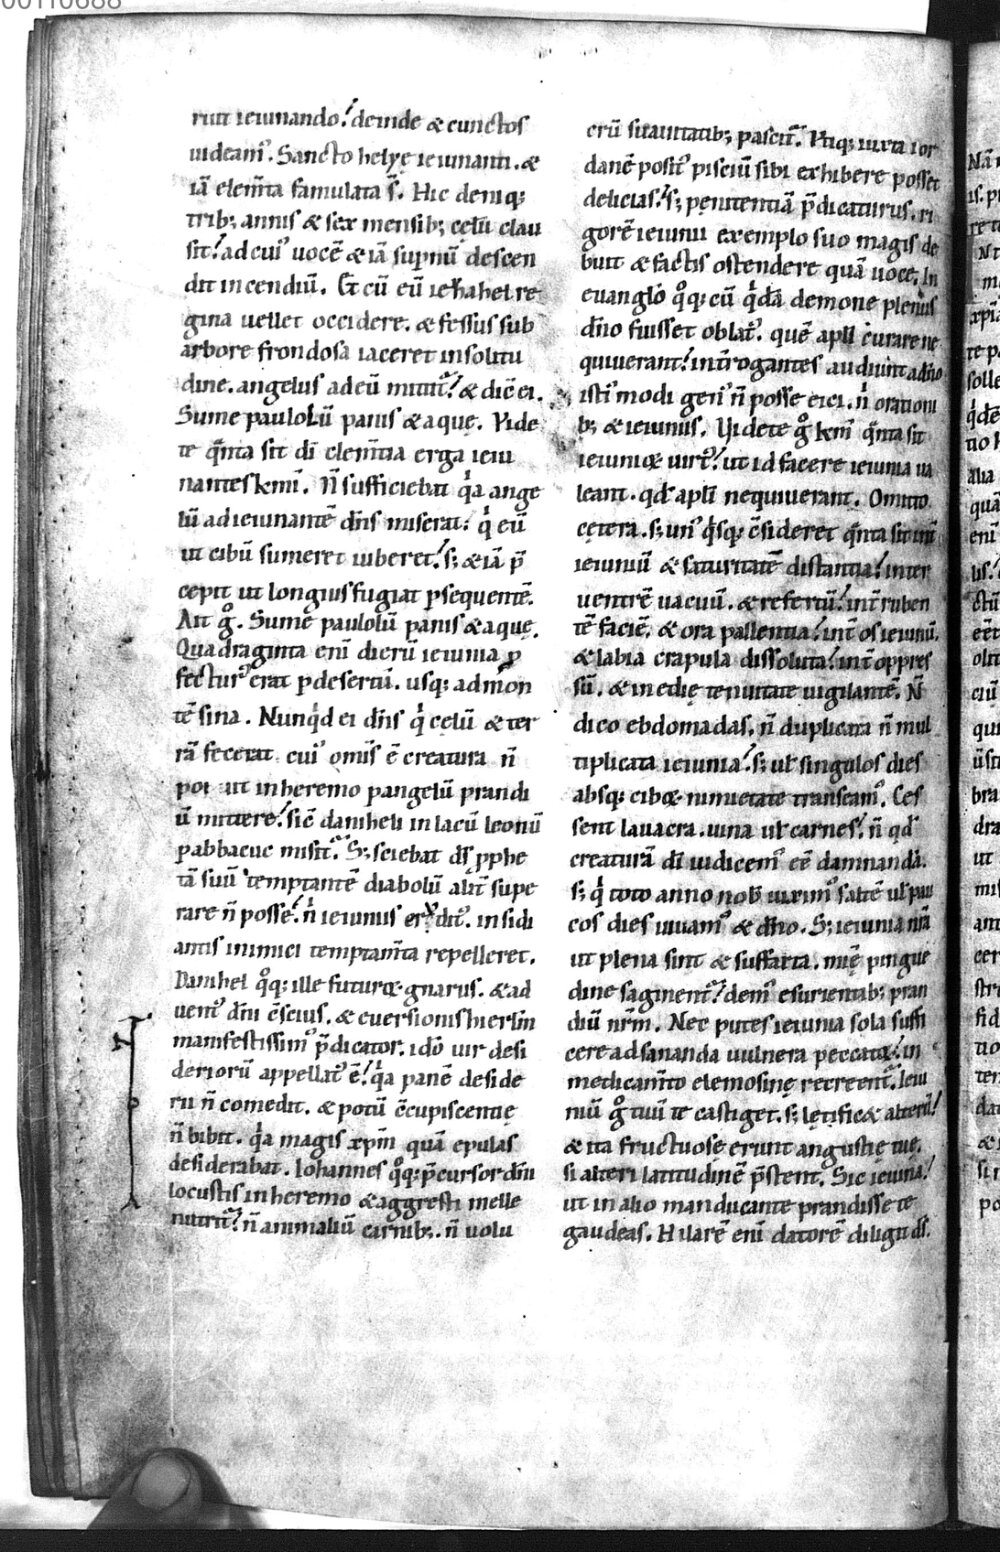 00110688
runt ieiunando! deinde & cunctos
uideam᷒. Sancto helyę ieiunanti. &
iā elem̄ta famulata s̄. Hic deniq;
trib; annis & sex mensib; cęlū clau
sit! ad cui᷒ uocē & iā supnū descen
dit incendiū. Et cū eū iezahel re
gina uellet occidere. & fessus sub
arbore frondosa iaceret in solitu
dine. angelus ad eū mittit᷒! & dic̄ ei.
Sume paululū panis & aquę. Vide
te q̄nta sit di clem̄tia erga ieiu
nantes km̄i. N̄ sufficiebat q̇a ange
lū ad ieiunantē dn̄s miserat: q̇ eū
ut cibū sumeret iuberet! s; & iā p̄
cepit ut longius fugiat p̱sequentē.
Ait g̊. Sume paululū panis & aquę.
Quadraginta eni dierū ieiunia p̱
fectur᷒ erat p desertū. usq; ad mon
tē sina. Nunq̇d ei dn̄s q̇ cęlū & ter
rā fecerat. cui᷒ omīs ē creatura n̄
pot at in heremo p angelū prandi
ū mittere! sic̄ daniheli in lacū leonū
p abbacuc misit. S; sciebat ds̄ pphe
tā suū temptantē diabolū alit̄ supe
rare n̄ posse! n̄ ieiunus erudit᷒. insidi
antis inimici temptam̄ta repelleret.
Danihel q̊q; ille futuroꝝ gnarus. & ad
uent᷒ dn̄i c̄scius. & euersionis hierlm̄
manifestissim᷒ p̄dicator. idō uir desi
deriorū appellat᷒ ē! q̇a panē deside
rii n̄ comedit. & potū c̄cupiscentię
n̄ bibit. q̇a magis xp̄m quā epulas
desiderabat. Iohannes q̊q; p̄cursor dn̄i
locustis in heremo & aggresti melle
nutrit᷒! n̄ animaliū carnib;. n̄ uolu
crū suauitatib; pascit᷒. Vtiq; iuxta ior
danē posit᷒ pisciū sibi exhibere posset
delicias! s; penitentiā p̄dicaturus. ri
gorē ieiunii exemplo suo magis de
buit & factis ostendere quā uoce. In
euanglō q̊q; cū q̇dā demone plenus
dn̄o fuisset oblat᷒. quē apli curare ne
quiuerant! int̄rogantes audiunt a dn̄o
isti᷒ modi gen᷒ n̄ posse eici. n̄ orationi
b; & ieiuniis. Videte g̊ km̄i q̄nta sit
ieiunioꝝ uirt᷒! ut id facere ieiunia ua
leant. qd̄ apli nequiuerant. Omitto
cętera. s; un᷒ q̇sq; c̄sideret q̄nta sit int̄
ieiuniū & saturitatē distantia! inter
uentrē uacuū. & refertū! int̄ ruben
tē faciē. & ora pallentia! int̄ os ieiunū.
& labia crapula dissoluta! int̄ oppres
sū. & inedię tenuitate uigilantē. N̄
dico ebdomadas. n̄ duplicata n̄ mul
tiplicata ieiunia! s; ul̄ singulos dies
absq; ciboꝝ nimietate transeam᷒. Ces
sent lauacra. uina ul̄ carnes! n̄ qd̄
creaturā di iudicem᷒ eē damnandā.
s; q̇ toto anno nob̄ uixim᷒ saltē ul̄ pau
cos dies uiuam᷒ & dn̄o. S; ieiunia nr̄a
ut plena sint & suffarta. nūc pingue
dine saginent᷒! dem᷒ esurientib; pran
diū nr̄m. Nec putes ieiunia sola suffi
cere ad sananda uulnera peccatoꝝ! in
medicam̄to elemosinę recreent᷒. Ieiu
niū g̊ tuū te castiget. s; lętific& alterū!
& ita fructuosę erunt angustię tuę.
si alteri latitudinē p̄stent. Sic ieiuna!
ut in alio manducante prandisse te
gaudeas. Hilarē eni datorē diligit ds̄.